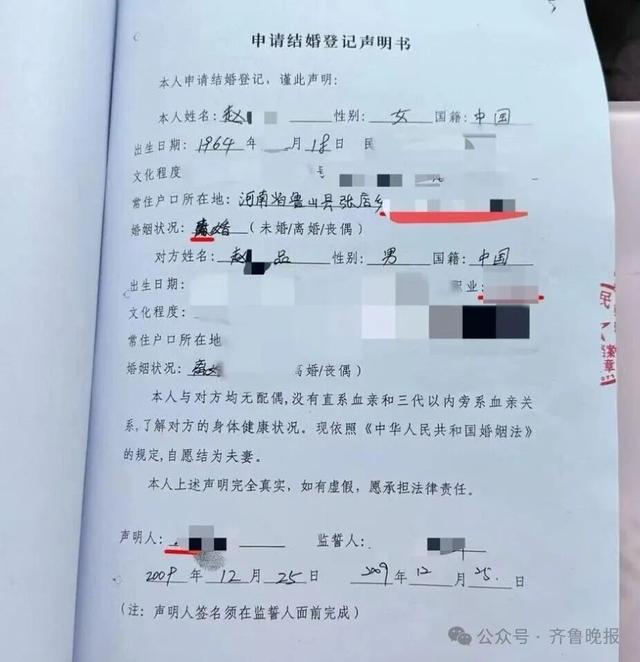 申请结婚登记声明书
本人申请结婚登记,谨此声明:
本人姓名:赵 性别:女 国籍:中国
出生日期:1964年 月18日 民
文化程度
常住户口所在地:河南省鲁山县张店乡
婚姻状况:离婚(未婚/离婚/丧偶)
对方姓名:赵 品 性别:男 国籍:中国
出生日期: 职业:
文化程度:
常住户口所在地
婚姻状况:离婚 离婚/丧偶)
本人与对方均无配偶,没有直系血亲和三代以内旁系血亲关
系,了解对方的身体健康状况。现依照《中华人民共和国婚姻法》
的规定,自愿结为夫妻。
本人上述声明完全真实,如有虚假,愿承担法律责任。
声明人: 监誓人:
2009年12月25日 2009年12月25日
(注:声明人签名须在监誓人面前完成)
民
章
公众号·齐鲁晚报